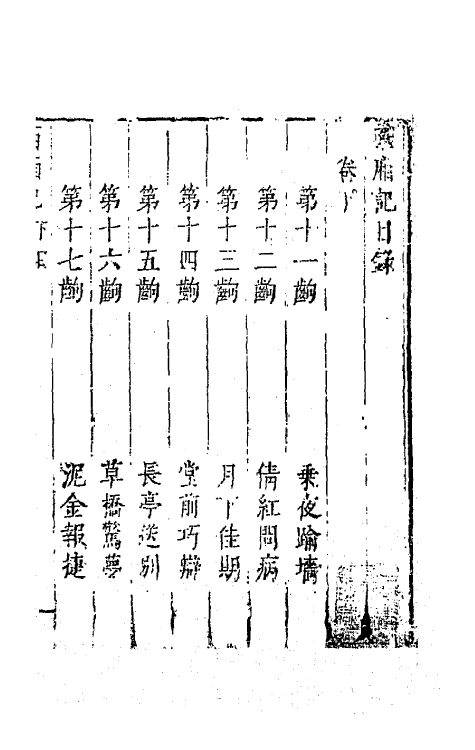 西廂記目錄
卷下
第十一齣 乘夜踰墻
第十二齣 倩紅問病
第十三齣 月下佳期
第十四齣 堂前巧辯
第十五齣 長亭送別
第十六齣 草橋驚夢
第十七齣 泥金報捷